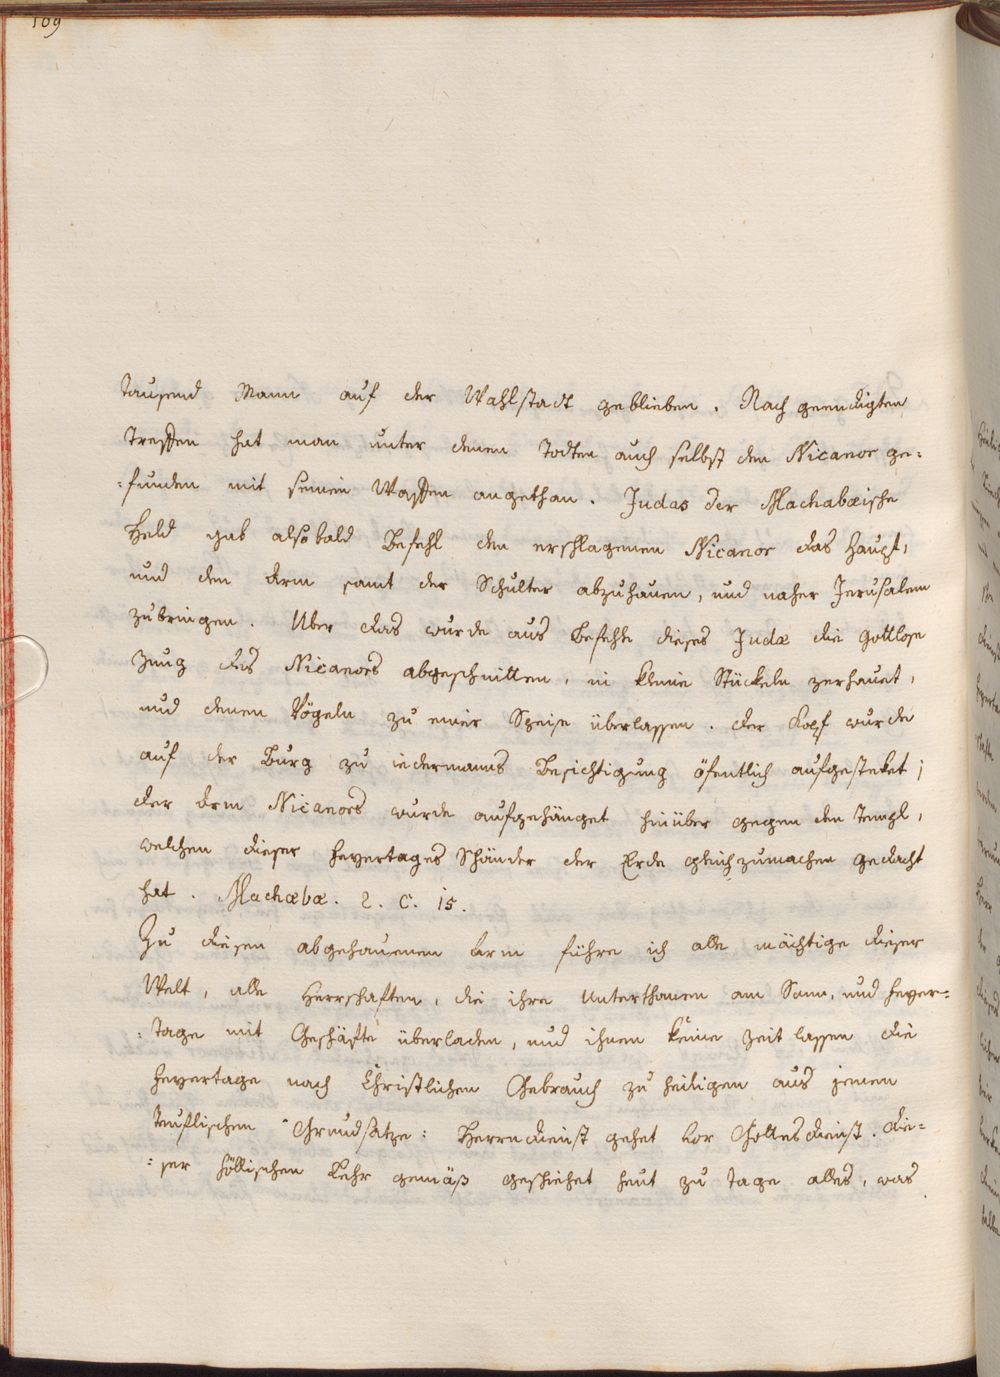 109
tausend Mann auf der Wahlstadt geblieben. Nach geendigten
Treffen hat man unter denen Todten auch selbst den Nicanor ge-
-funden mit seinen Waffen angethan. Judas der Machabæische
Held gab alsobald Befehl den erschlagenen Nicanor das Haupt,
und den Arm samt der Schulter abzuhauen, und naher Jerusalem
zubringen. Uber das wurde aus Befehle dieses Judæ die gottlose
Zung des Nicanors abgeschnitten, in kleine Stückeln zerhauet,
und denen Vögeln zu einer Speise überlassen. der Kopf wurde
auf der Burg zu iedermanns Besichtigung öfentlich aufgesteket;
der Arm Nicanors wurde aufgehänget hinüber gegen den Templ,
welchen dieser Feyertages Schänder der Erde gleichzumachen gedacht
hat. Machabæ. 2. C. 15.
Zu diesen abgehauenen Arm führe ich alle mächtige dieser
Welt, alle Herrschaften, die ihre Unterthanen am Sonn, und Feyer-
-tage mit Geschäfte überladen, und ihnen keine Zeit lassen die
Feyertage nach Christlichen Gebrauch zu heiligen aus jenen
teuflischen Grundsatze: Herrndienst gehet vor Gottesdienst. die-
-ser höllischen Lehr gemäß geschiehet heut zu Tage alles, was